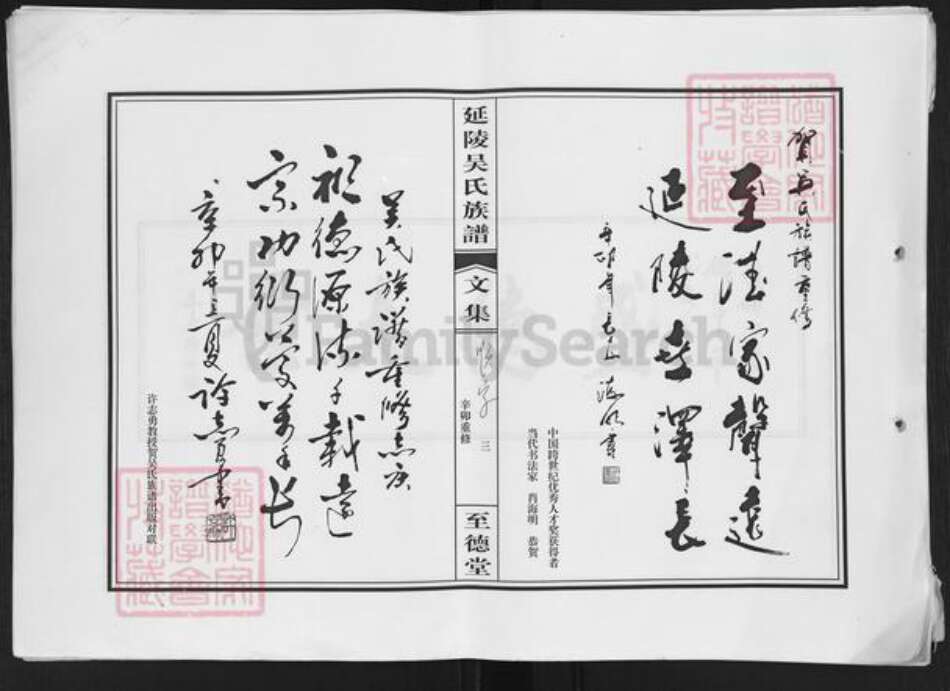 贺吴氏族譜重修
至德家聲遠
延陵世澤長
辛卯年
海明書
中国跨世纪优秀人才奖获得者
当代书法家 肖海明 恭贺
延陵吴氏族譜
文集
辛卯重修
三
至德堂
吴氏族譜重修志庆
祖德源流千载遠
宗功衍慶萬年长
辛卯年之夏许志勇书
许志勇教授贺吴氏族谱出版对联
FamilySearch